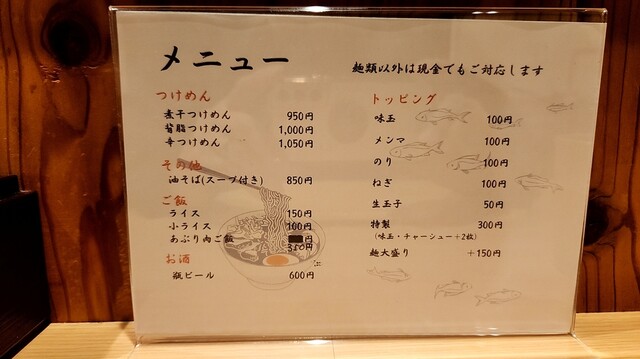 メニュー
麺類以外は現金でもご対応します
つけめん
煮干つけめん 950円
背脂つけめん 1,000円
辛つけめん 1,050円
その他
油そば(スープ付き) 850円
ご飯
ライス 150円
小ライス 100円
あぶり肉ご飯 350円
お酒
瓶ビール 600円
トッピング
味玉 100円
メンマ 100円
のり 100円
ねぎ 100円
生玉子 50円
特製 300円
(味玉・チャーシュー+2枚)
麺大盛り +150円